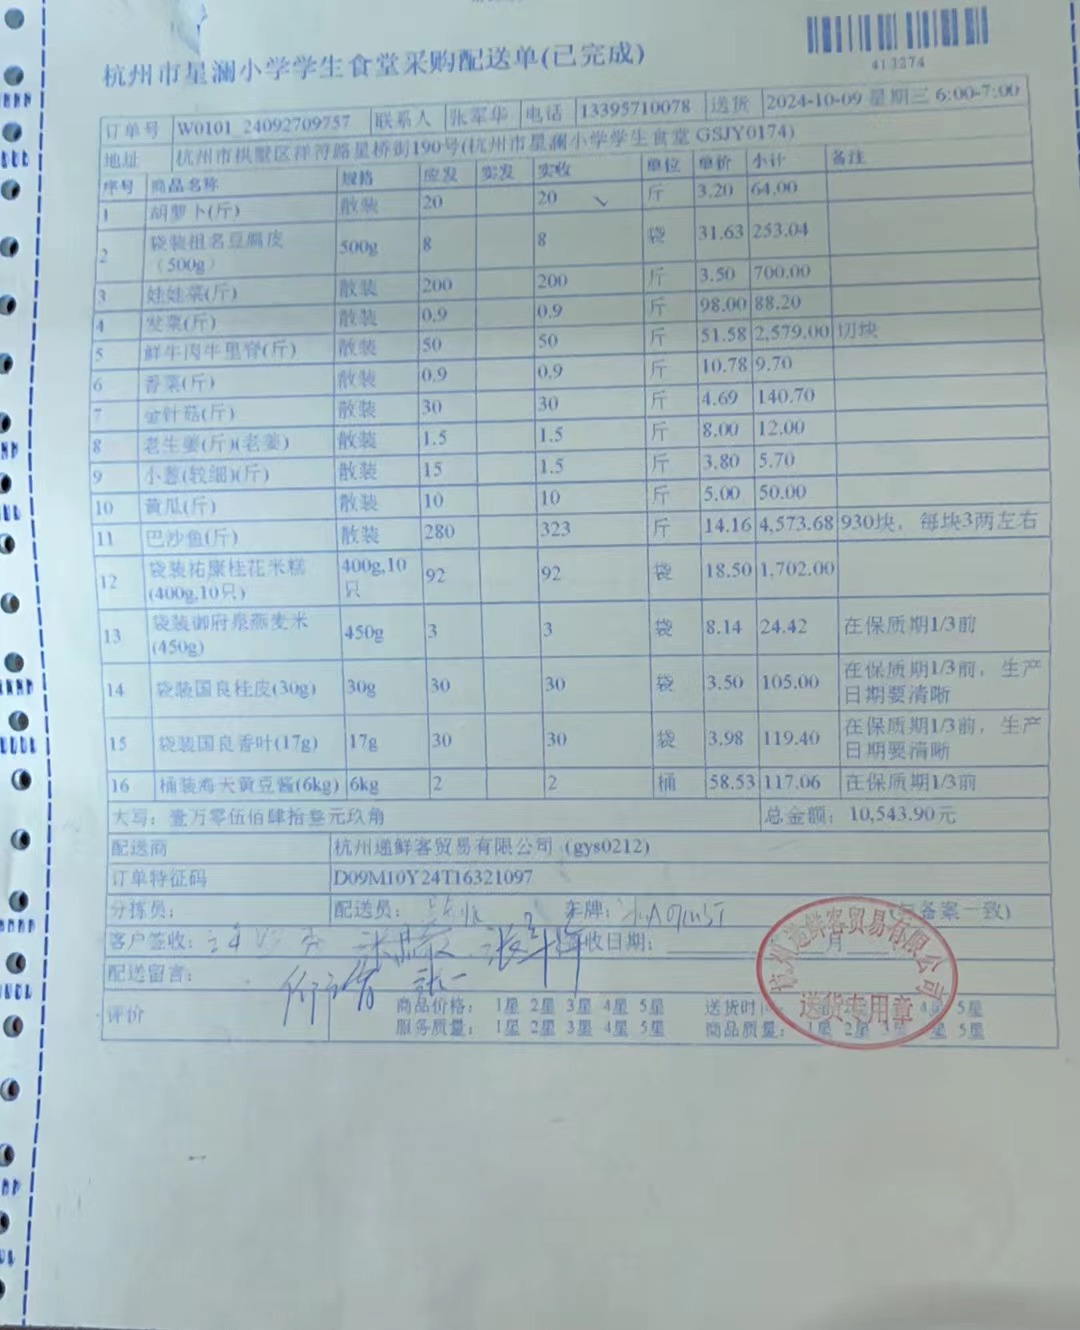 413274
杭州市星澜小学学生食堂采购配送单(已完成)
订单号 W0101_24092709757 联系人 张军华 电话 13395710078 送货 2024-10-09 星期三 6:00-7:00
地址 杭州市拱墅区祥符路星桥街190号(杭州市星澜小学学生食堂 GSJY0174)
序号 商品名称 规格 应发 实发 实收 单位 单价 小计 备注
1 胡萝卜(斤) 散装 20 20 斤 3.20 64.00
2 袋装祖名豆腐皮(500g) 500g 8 8 袋 31.63 253.04
3 娃娃菜(斤) 散装 200 200 斤 3.50 700.00
4 发菜(斤) 散装 0.9 0.9 斤 98.00 88.20
5 鲜牛肉牛里脊(斤) 散装 50 50 斤 51.58 2,579.00 切块
6 香菜(斤) 散装 0.9 0.9 斤 10.78 9.70
7 金针菇(斤) 散装 30 30 斤 4.69 140.70
8 老生姜(斤)(老姜) 散装 1.5 1.5 斤 8.00 12.00
9 小葱(较细)(斤) 散装 15 1.5 斤 3.80 5.70
10 黄瓜(斤) 散装 10 10 斤 5.00 50.00
11 巴沙鱼(斤) 散装 280 323 斤 14.16 4,573.68 930块，每块3两左右
12 袋装祐康桂花米糕(400g,10只) 400g,10只 92 92 袋 18.50 1,702.00
13 袋装御府泉燕麦米(450g) 450g 3 3 袋 8.14 24.42 在保质期1/3前
14 袋装国良桂皮(30g) 30g 30 30 袋 3.50 105.00 在保质期1/3前，生产日期要清晰
15 袋装国良香叶(17g) 17g 30 30 袋 3.98 119.40 在保质期1/3前，生产日期要清晰
16 桶装海天黄豆酱(6kg) 6kg 2 2 桶 58.53 117.06 在保质期1/3前
大写：壹万零伍佰肆拾叁元玖角 总金额：10,543.90元
配送商 杭州递鲜客贸易有限公司 (gys0212)
订单特征码 D09M10Y24T16321097
分拣员： 配送员： 车牌： 备案一致)
客户签收： 签收日期： 月
配送留言：
评价 商品价格：1星 2星 3星 4星 5星 送货时 4星 5星
服务质量：1星 2星 3星 4星 5星 商品质量：1星 2星 星 5星
杭州递鲜客贸易有限公司
送货专用章